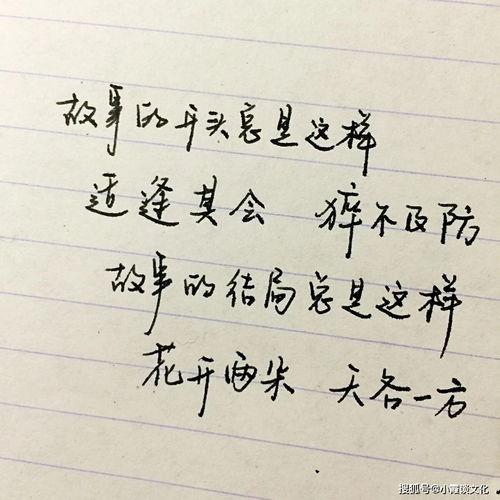 故事的开头总是这样
适逢其会 猝不及防
故事的结局总是这样
花开两朵 天各一方
搜狐号@小霞谈文化